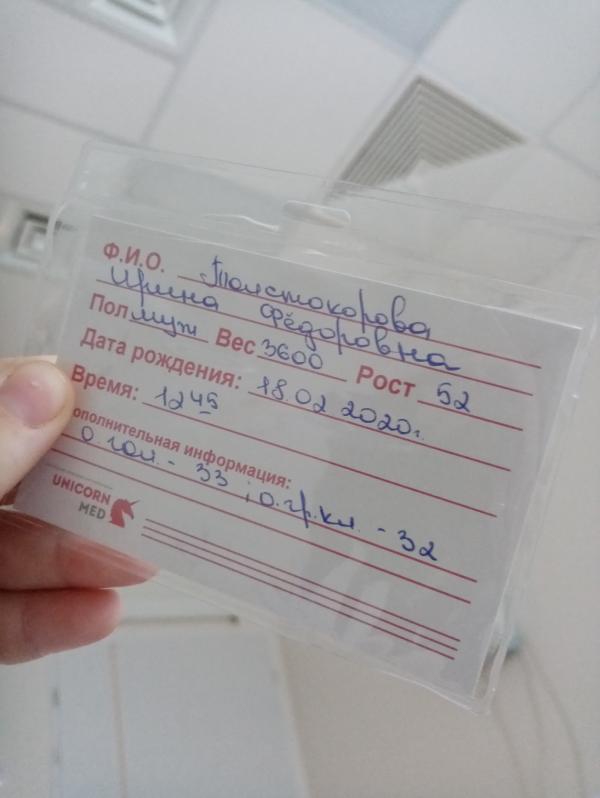 Ф.И.О. Толстокорова
Ирина Фёдоровна
Пол муж Вес 3600 Рост 52
Дата рождения: 18.02 2020г.
Время: 12 45
ополнительная информация:
о. гол. - 33 ; о. гр. кл. - 32
UNICORN
MED